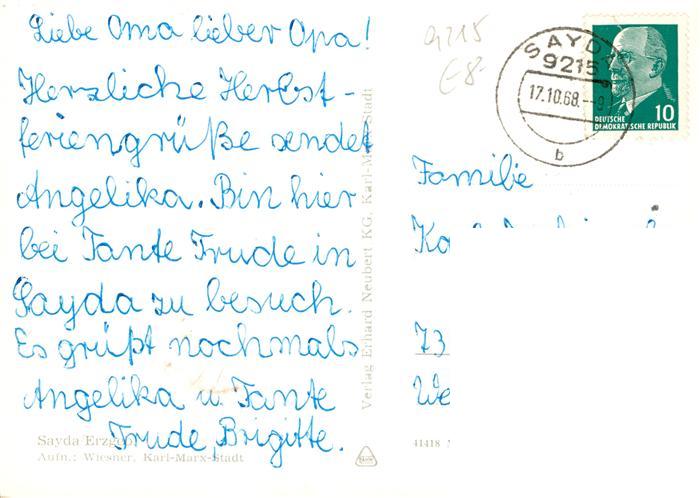 Liebe Oma lieber Opa!
Herzliche Herbst-
feriengrüße sendet
Angelika. Bin hier
bei Tante Trude in
Sayda zu besuch.
Es grüßt nochmals
Angelika u. Tante
Trude, Brigitte.
Sayda Erzgeb.
Aufn.: Wiesner, Karl-Marx-Stadt
Verlag Erhard Neubert KG, Karl-Marx-Stadt
9215
€8-
SAYDA
9215
17.10.68.--9
b
10
DEUTSCHE
DEMOKRATISCHE REPUBLIK
Familie
73
We
41418